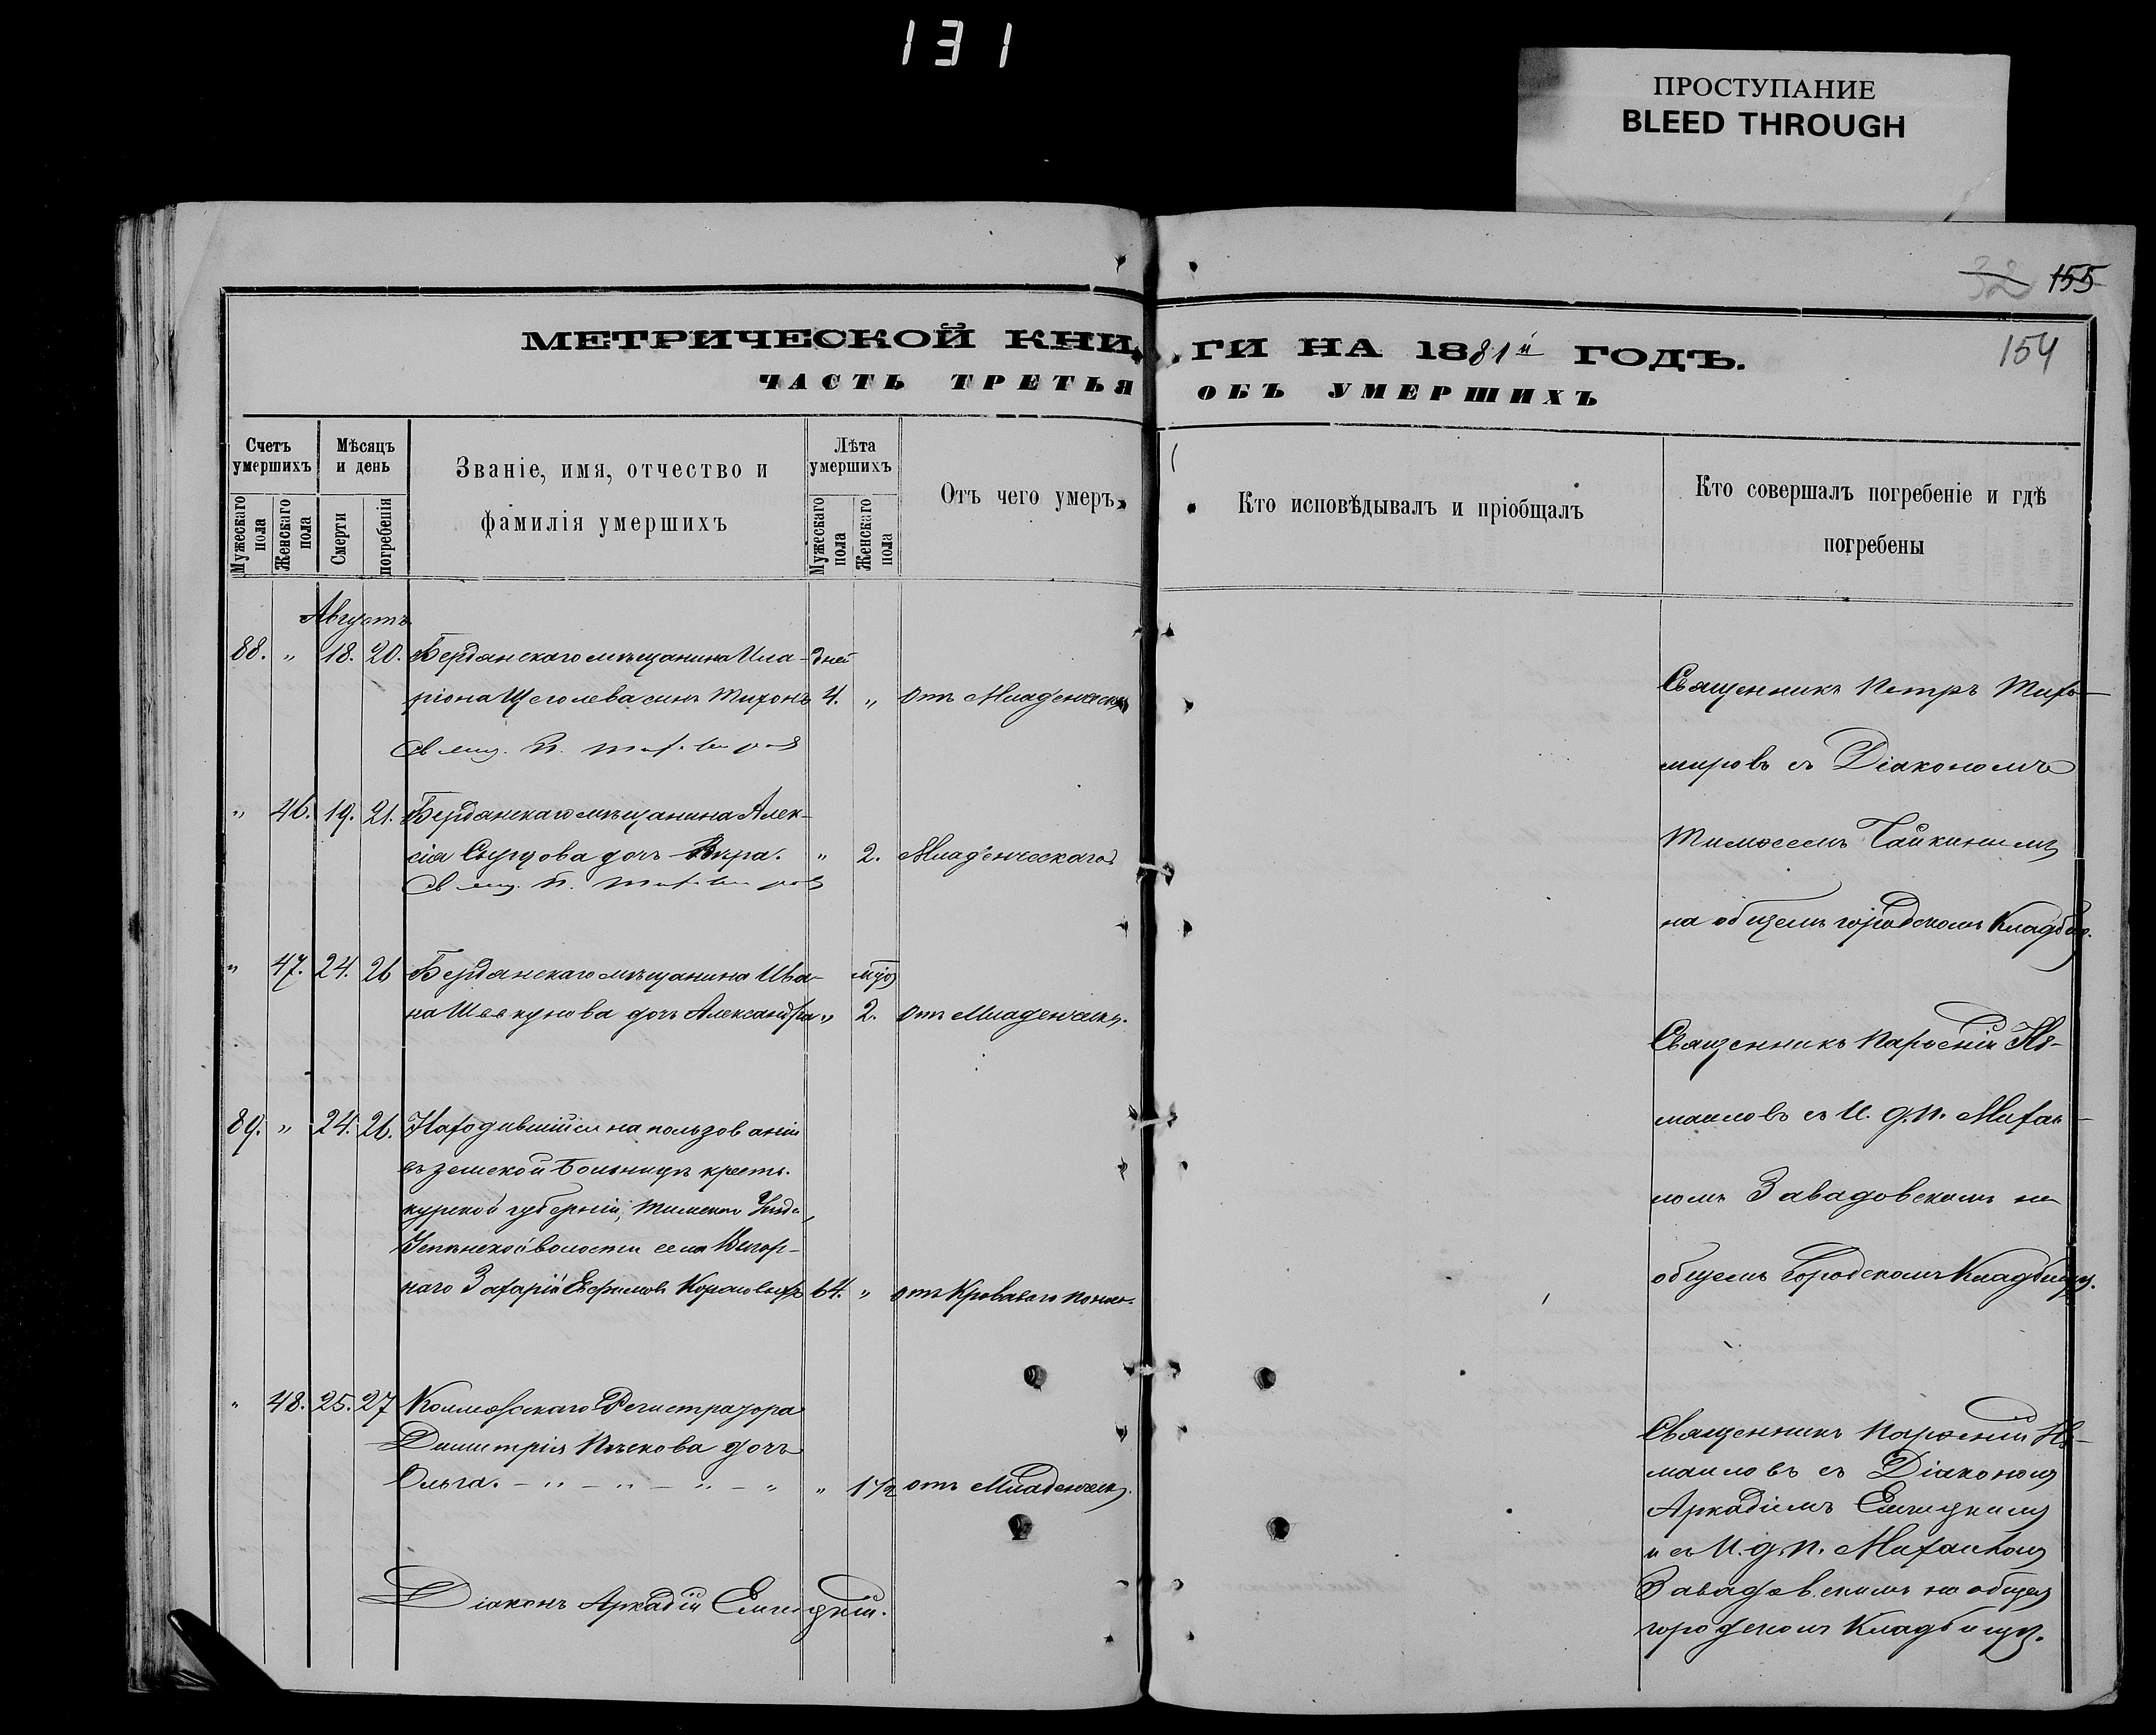 131
ПРОСТУПАНИЕ
BLEED THROUGH
32 155
154
МЕТРИЧЕСКОЙ КНИГИ НА 1881й ГОДЪ.
ЧАСТЬ ТРЕТЬЯ ОБЪ УМЕРШИХЪ
Счетъ умершихъ
Мужескаго пола
Женскаго пола
Мѣсяцъ и день
Смерти
погребенія
Званіе, имя, отчество и
фамилія умершихъ
Лѣта умершихъ
Мужескаго пола
Женскаго пола
Отъ чего умеръ
Кто исповѣдывалъ и пріобщалъ
Кто совершалъ погребеніе и гдѣ
погребены
Августъ
88. " 18. 20. Бердянскаго мѣщанина Ила- дней
ріона Щеголева сынъ Тихонъ 4. " отъ Младенческ
Свящ. П. Тихомировъ
" 46. 19. 21. Бердянскаго мѣщанина Алек-
сія дочь Вѣра. " 2. Младенческаго
Свящ. П. Тихомировъ
Священникъ Петръ Тихо-
мировъ съ Діакономъ
Тимофеемъ Чайкинымъ
на общемъ городскомъ Кладбищ.
" 47. 24. 26 Бердянскаго мѣщанина Ива-
на дочь Александра " 2. отъ Младенческ.
89. " 24. 26. Находившійся на пользованіи
въ земской Больницѣ крест.
курской губерніи, Тимскаго Уѣзда,
волости села
Захарій Ефимовъ 64. " отъ Кроваваго поноса.
Священникъ Парѳеній Из-
маиловъ съ И. д. п. Михаи-
ломъ Завадовскимъ на
общемъ Городскомъ Кладбищѣ.
" 48. 25. 27 Коллежскаго Регистратора
Димитрія дочь
Ольга. — " — " — " — " " 1 1/2 отъ Младенческ.
Священникъ Парѳеній Из-
маиловъ съ Діакономъ
Аркадіемъ
и съ И. д. п. Михаиломъ
Завадовскимъ на общемъ
городскомъ Кладбищѣ.
Діаконъ Аркадій